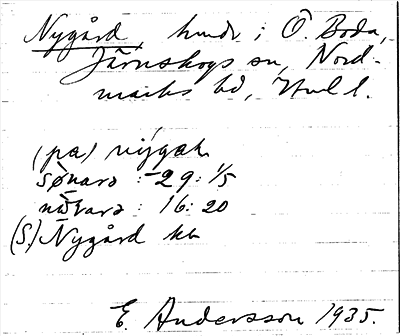 Nygård, hmdr i Ö. Boda,
Järnskogs sn, Nord-
marks hd, Vrml l.
(pa) nỳgạk
sǿnara : 29: 1/5
nǻrara : 16: 20
(S.) Nygård kb
E. Andersson 1935.